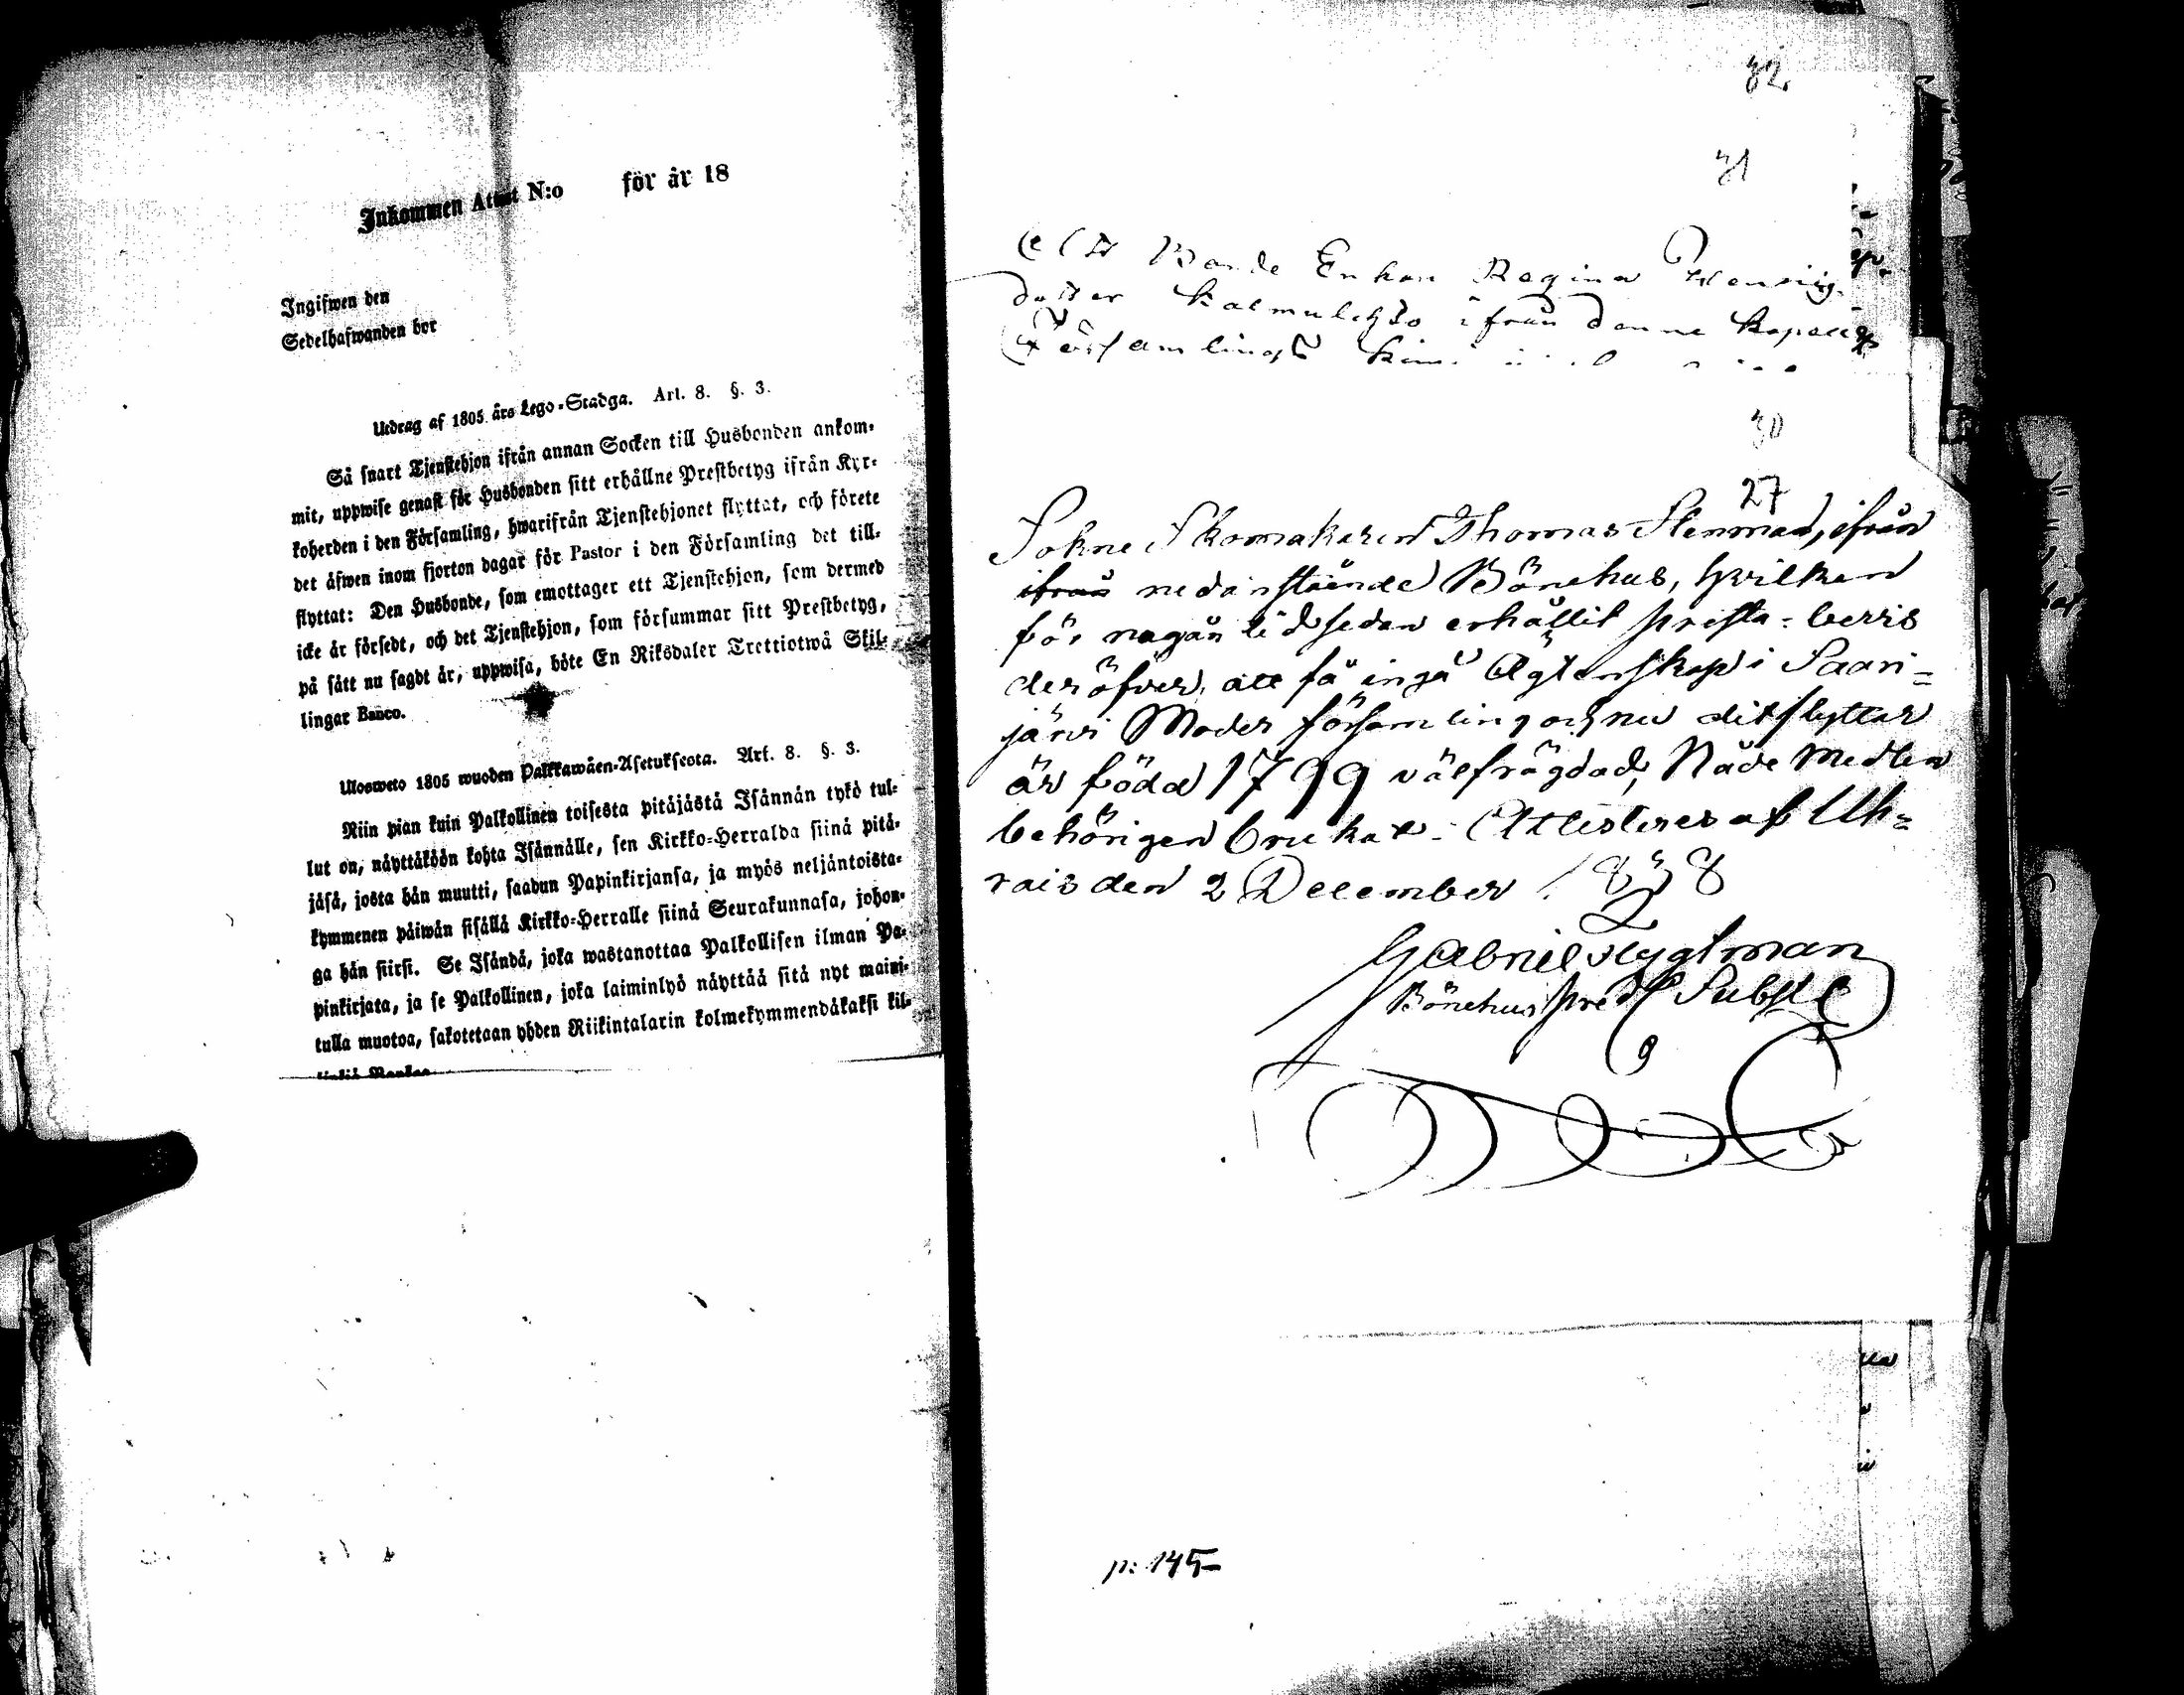 Inkommen Attest N:o för år 18
Ingifwen den
Sedelhafwanden bor
Utdrag af 1805 års Lego-Stadga. Art. 8. §. 3.
Så snart Tjenstehjon ifrån annan Socken till Husbonden ankom-
mit, uppwise genast för Husbonden sitt erhållne Prestbetyg ifrån Kyr-
koherden i den Församling, hwarifrån Tjenstehjonet flyttat, och förete
det äfwen inom fjorton dagar för Pastor i den Församling det till-
flyttat: Den Husbonde, som emottager ett Tjenstehjon, som dermed
icke är försedt, och det Tjenstehjon, som försummar sitt Prestbetyg,
på sätt nu sagdt är, uppwisa, böte En Riksdaler Trettiotwå Skil-
lingar Banco.
Ulosweto 1805 wuoden Palkkawäen-Asetuksesta. Art. 8. §. 3.
Niin pian kuin Palkollinen toisesta pitäjästä Isännän tykö tul-
lut on, näyttäköön kohta Isännälle, sen Kirkko-Herralda siinä pitä-
jäsä, josta hän muutti, saadun Papinkirjansa, ja myös neljäntoista-
kymmenen päiwän sisällä Kirkko-Herralle siinä Seurakunnasa, johon-
ga hän siirsi. Se Isändä, joka wastanottaa Palkollisen ilman Pa-
pinkirjata, ja se Palkollinen, joka laiminlyö näyttää sitä nyt maini-
tulla muotoa, sakotetaan yhden Riikintalarin kolmekymmendäkaksi kil-
32
31
Bonde Enkan Regina Henrics
dotter ifrån denna Kapell
Församlings
30
27
Sokne Skomakaren Thomas Stenman, ifrån
ifrån nedanstående Bönehus, hvilken
för någån tid sedan erhållit presta-bevis
deröfver, att få ingå Ägtenskap i Saari=
järvi Moder församling och nu ditflyttar
är född 1799 välfrägdad, Nåde Medlen
behörigen brukat. Attesteres af Uh=
rais den 2 December 1838
Gabriel Hygtman
Bönehus pred Subst
p: 145